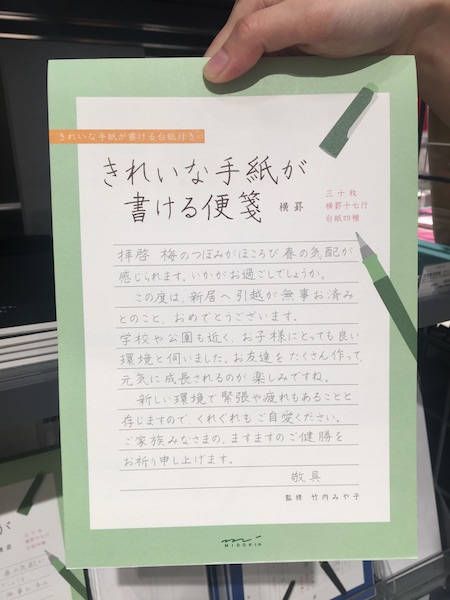 きれいな手紙が書ける台紙付き
きれいな手紙が
書ける便箋 横罫
三十枚
横罫十七行
台紙四種
拝啓 梅のつぼみがほころび 春の気配が
感じられます。いかがお過ごしでしょうか。
この度は、新居へ引越が無事お済み
とのこと、おめでとうございます。
学校や公園も近く、お子様にとっても良い
環境と伺いました。お友達をたくさん作って、
元気に成長されるのが楽しみですね。
新しい環境で緊張や疲れもあることと
存じますので、くれぐれもご自愛ください。
ご家族みなさまの、ますますのご健勝を
お祈り申し上げます。
敬具
監修 竹内みや子
MIDORI
が
横罫
三十枚
横罫十七行
台紙四種